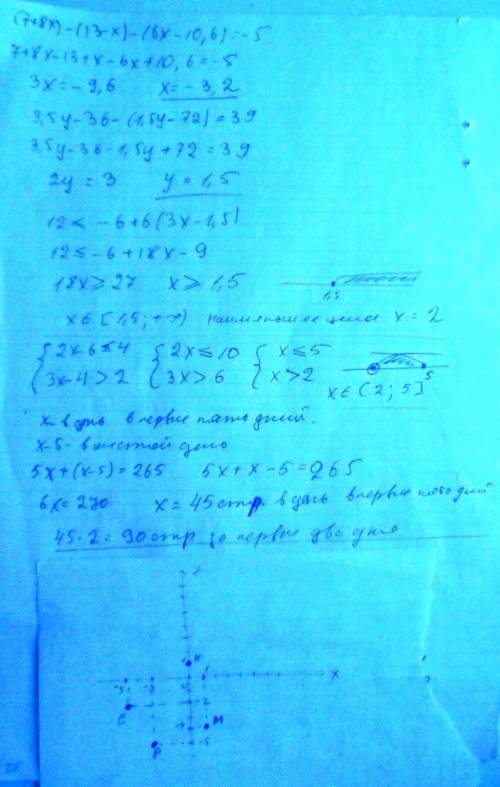 (7+8x)-(13-x)-(6x-10,6)=-5
7+8x-13+x-6x+10,6=-5
3x=-9,6 x=-3,2
3,5y-36-(1,5y-72)=39
3,5y-36-1,5y+72=39
2y=3 y=1,5
12≤-6+6(3x-1,5)
12≤-6+18x-9
18x≥27 x≥1,5
1,5
x∈[1,5;+∞) наименьшее целое x=2
{2x-6≤4 {2x≤10 {x≤5
{3x-4>2 {3x>6 {x>2
2 5
x∈(2;5]
x-в день в первые пять дней.
x-5-в шестой день
5x+(x-5)=265 5x+x-5=265
6x=270 x=45стр. в день в первые пять дней
45·2=90стр за первые два дня
K
-5 -3 0 1 x
E -2
-4 M
P -5